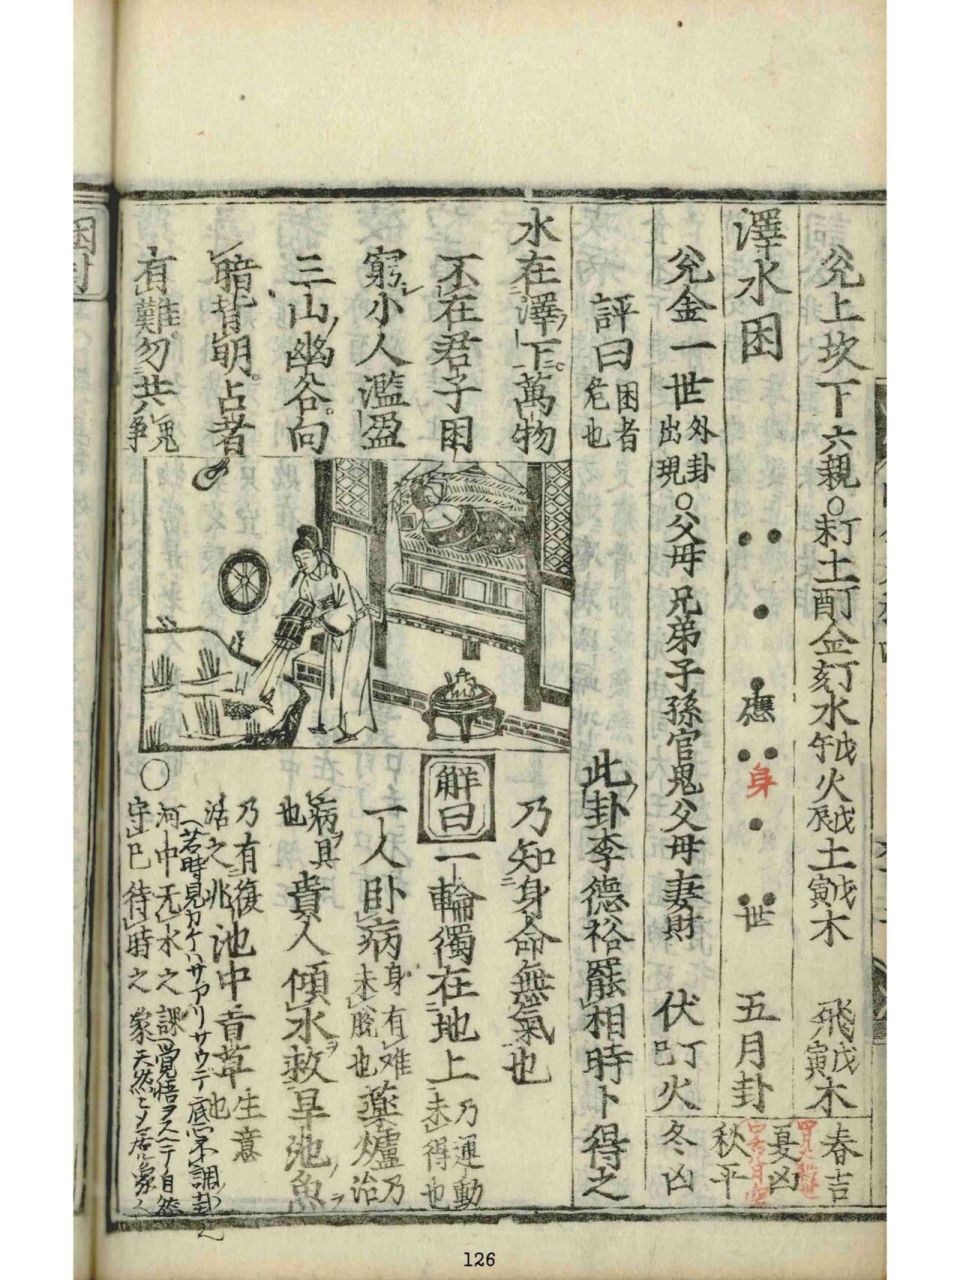 兊上坎下六親○未丁土酉丁金亥丁水午戊火辰戊土寅戊木 飛戊寅木 春吉
澤水困 應 身 世 五月卦 夏凶 秋平
兊金一世外卦出現○父母兄弟子孫官鬼父母妻財 伏丁巳火 冬凶
評曰困者危也 此卦李德裕罷相時卜得之
水在澤下萬物
不在君子困
窮小人濫盈
三山幽谷向
暗背明占者
有難勿共鬼爭
乃知身命無氣也
解曰一輪獨在地上乃運動未得也
一人臥病身有难未脫也藥爐乃治
病具也貴人傾水救旱池魚
乃有復活之兆池中青草生意也
○河中无水之課守已待時之象
126